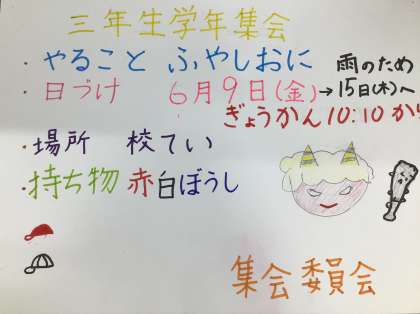 三年生学年集会
・やること ふやしおに
・日づけ 6月9日(金)→15日(木)へ
雨のため
ぎょうかん10:10から
・場所 校てい
・持ち物 赤白ぼうし
集会委員会